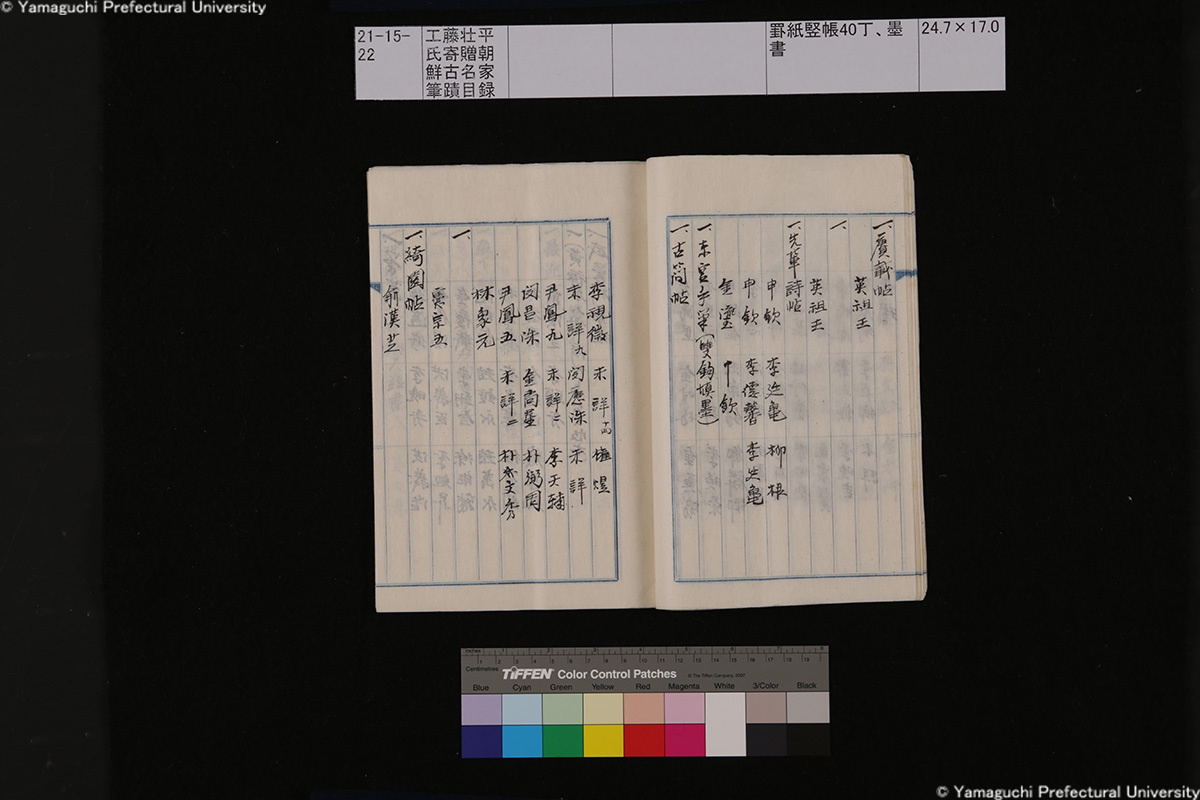 © Yamaguchi Prefectural University
21-15-
22
工藤壮平
氏寄贈朝
鮮古名家
筆蹟目録
罫紙竪帳40丁、墨
書
24.7×17.0
一、賡韻帖
英祖王
一、
英祖王
一、先輩詩帖
申欽 李廷亀 柳根
申欽 李德馨 李廷亀
金瑬 申欽
一、東宮手筆(雙鉤填墨)
一、古简帖
李視徵 未詳
未詳九 閔應洙 未詳
尹鳳九 未詳二 李天輔
閔昌洙 金尚星 朴弼周
尹鳳五 未詳二 朴文秀
林象元
一、
一、綺園帖
兪漢芝
inches
1 2 3 4 5 6 7 8
Centimetres
1 2 3 4 5 6 7 8 9 10 11 12 13 14 15 16 17 18 19
TIFFEN Color Control Patches
© The Tiffen Company, 2007
Blue Cyan Green Yellow Red Magenta White 3/Color Black
© Yamaguchi Prefectural University